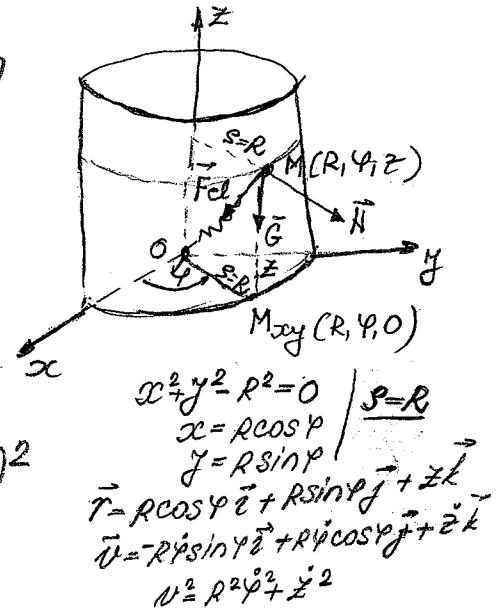 z
)
s=R
M(R,φ,z)
F⃗el
N⃗
G⃗
O
φ
s=R
z
y
Mxy(R,φ,0)
x
x²+y²-R²=0
s=R
x=Rcosφ
y=Rsinφ
)²
r⃗=Rcosφi⃗+Rsinφj⃗+zk⃗
v⃗=-Rφ̇sinφi⃗+Rφ̇cosφj⃗+żk⃗
v²=R²φ̇²+ż²